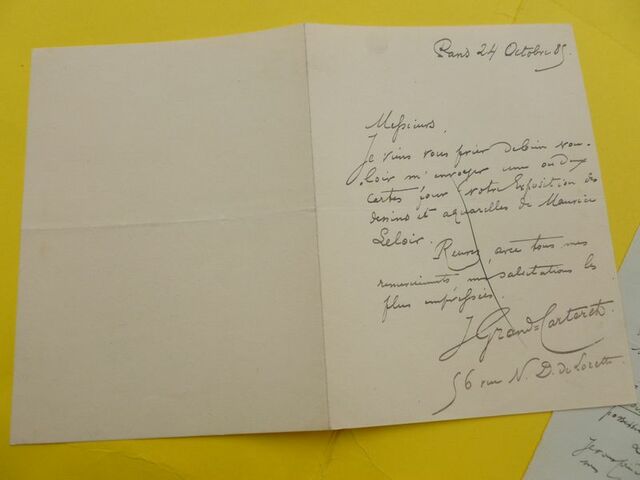 Paris 24 Octobre 85
Messieurs,
Je viens vous prier de bien vou-
loir m'envoyer une ou deux
cartes pour votre Exposition des
dessins et aquarelles de Maurice
Leloir.
Recevez, avec tous mes
remerciements, mes salutations les
plus empressées.
J Grand-Carteret
56 rue N. D. de Lorette